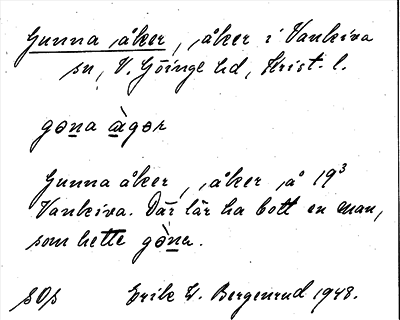 Gunna åker, åker i Vankiva
sn, V. Göinge hd, Krist. l.
gǝna àgǝr
Gunna åker, åker å 19³
Vankiva. Där lär ha bott en man,
som hette gǝna.
sOs Erik W. Bergenrud 1948.